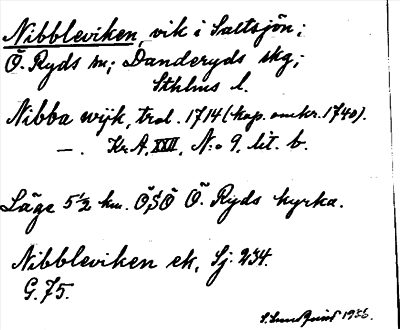 Nibbleviken, vik i Saltsjön;
Ö. Ryds sn; Danderyds skg;
Sthlms l.
Nibba wijk, trol. 1714 (kop. omkr. 1740).
—. Kr. A. XXII, N:o 9, lit. b.
Läge 5 1/2 km. ÖSÖ Ö. Ryds kyrka.
Nibbleviken ek. Sj. 234.
G. 75.
S. Lundquist 1936.